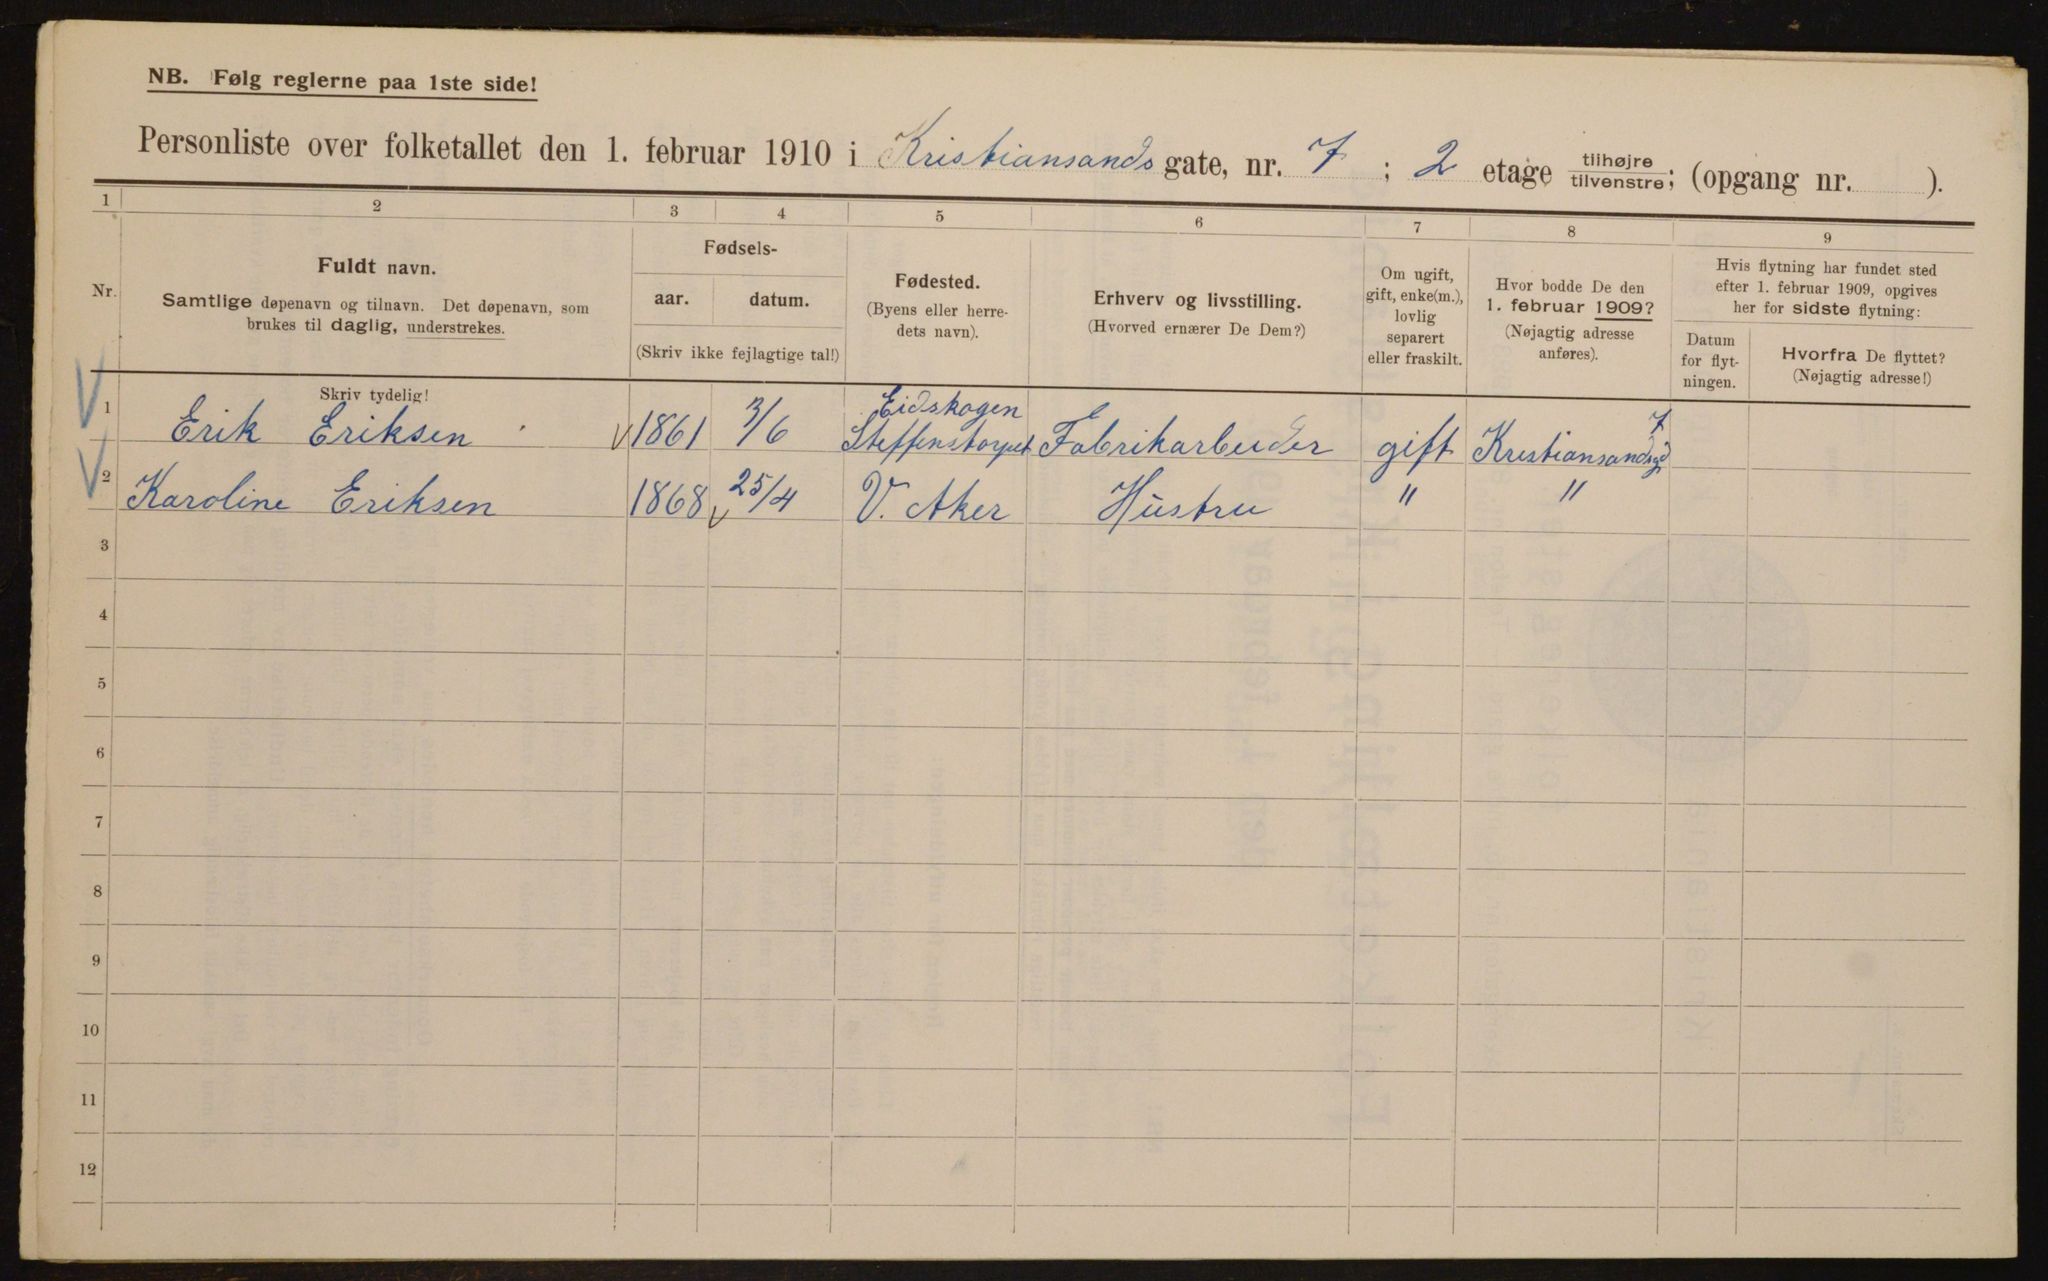 NB. Følg reglerne paa 1ste side!
Personliste over folketallet den 1. februar 1910 i Kristiansands gate, nr. 7 ; 2 etage tilhøjre tilvenstre; (opgang nr. ).
1 2 3 4 5 6 7 8 9
Nr.
Fuldt navn.
Samtlige døpenavn og tilnavn. Det døpenavn, som
brukes til daglig, understrekes.
Skriv tydelig!
Fødsels-
aar. datum.
(Skriv ikke fejlagtige tal!)
Fødested.
(Byens eller herre-
dets navn).
Erhverv og livsstilling.
(Hvorved ernærer De Dem?)
Om ugift,
gift, enke(m.),
lovlig
separert
eller fraskilt.
Hvor bodde De den
1. februar 1909?
(Nøjagtig adresse
anføres).
Hvis flytning har fundet sted
efter 1. februar 1909, opgives
her for sidste flytning:
Datum
for flyt-
ningen.
Hvorfra De flyttet?
(Nøjagtig adresse!)
Eidskogen 7
1 Erik Eriksen 1861 3/6 Steffenstorpet Fabrikarbeider gift Kristiansandsgd
2 Karoline Eriksen 1868 25/4 V. Aker Hustru " "
3
4
5
6
7
8
9
10
11
12